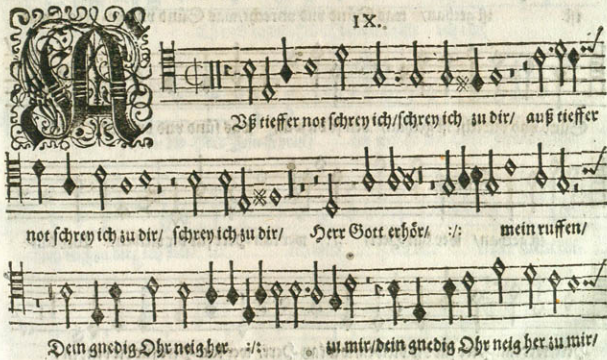 IX.
AVß tieffer not schrey ich/schrey ich zu dir/ auß tieffer
not schrey ich zu dir/ schrey ich zu dir/ Herr Gott erhör/ :/: mein ruffen/
Dein gnedig Ohr neig her :/: zu mir/dein gnedig Ohr neig her zu mir/